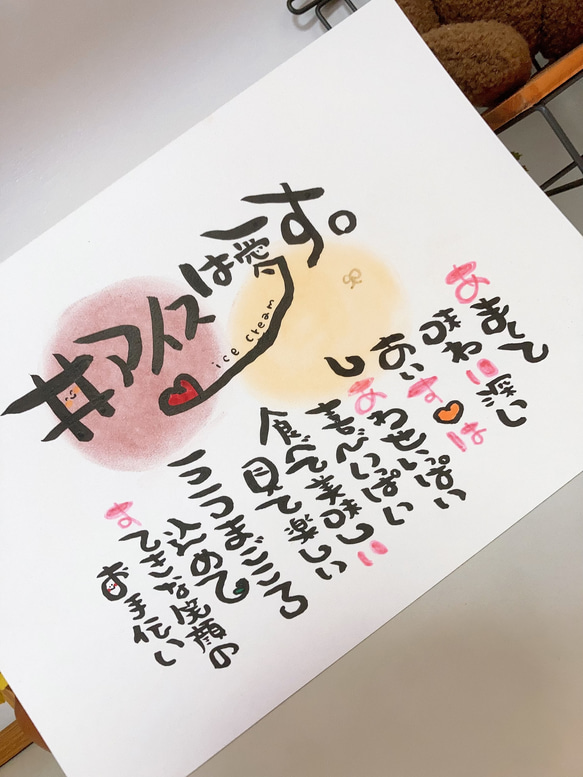 #アイスは愛す。
ice cream
あまくて
味わい深い
あいす♥は
しあわせいっぱい
喜びいっぱい
食べて美味しい
見て楽しい
三つまごころ
込めて
すてきな笑顔の
お手伝い